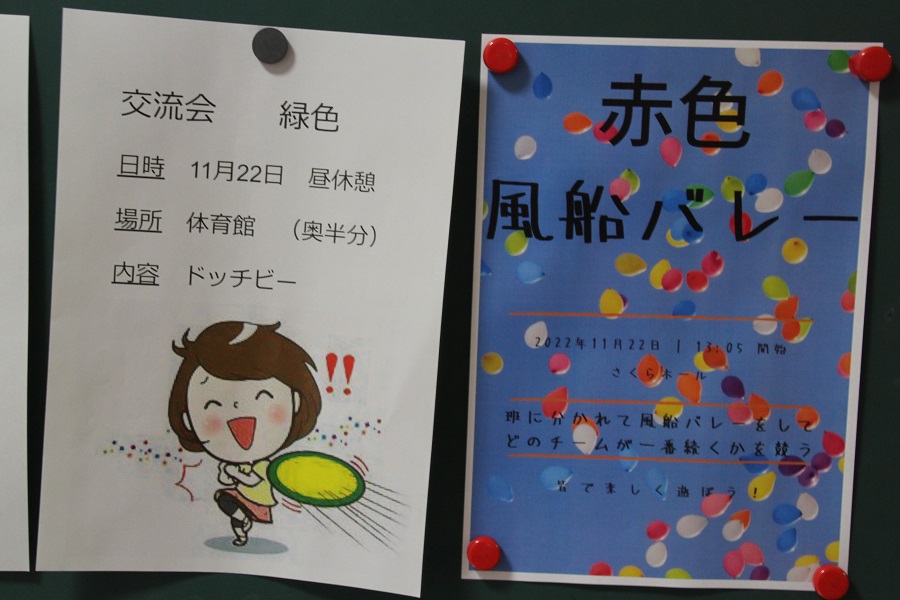 交流会　緑色
日時　11月22日　昼休憩
場所　体育館　（奥半分）
内容　ドッチビー
!!
赤色
風船バレー
2022年11月22日 | 13:05 開始
さくらホール
班に分かれて風船バレーをして
どのチームが一番続くかを競う
皆で楽しく遊ぼう！